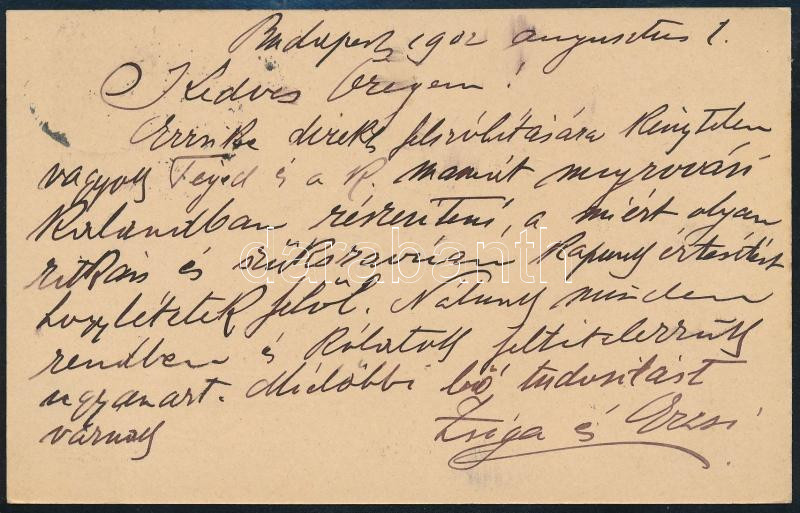 Budapest, 1902 augusztus 1.
Kedves Öregem!
direkt felszólitására kénytelen
vagyok Téged és a K. mamát megrovási
kalandban részesiteni, a miért olyan
ritkán és szűkszavúan kapunk értesitést
hogylétetek felől. Nálunk minden
rendben és Rólatok feltételezzük
ugyanazt. Mielőbbi bő tudositást
várnak
Zsiga és Erzsi
darabanth